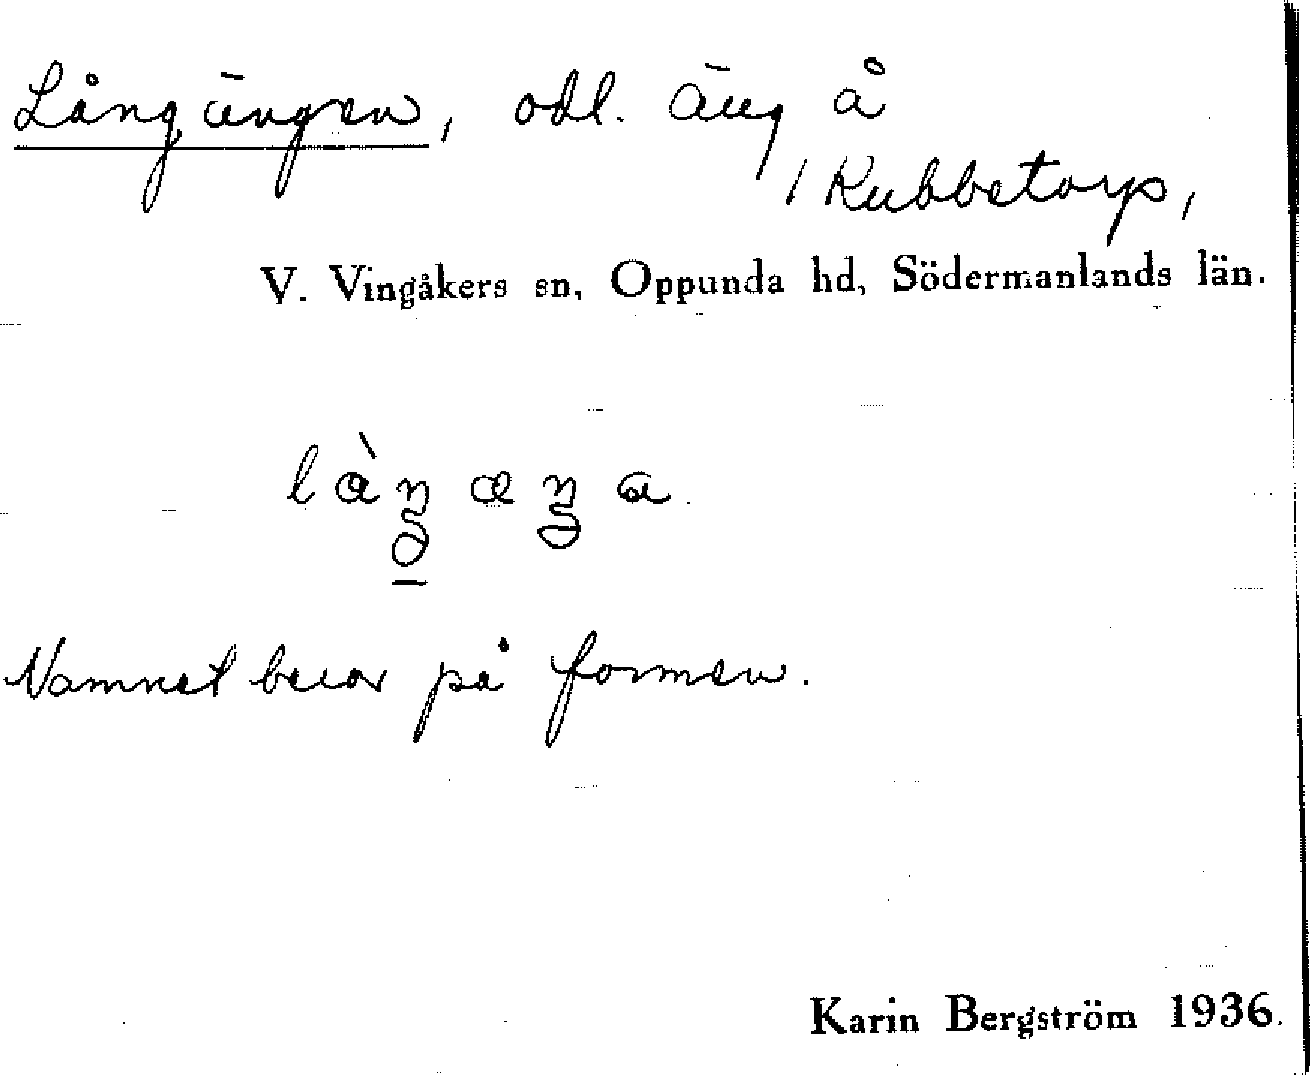 Långängen, odl. äng å
/ Kubbetorp,
V. Vingåkers sn, Oppunda hd, Södermanlands län.
Namnet beror på formen.
Karin Bergström 1936.